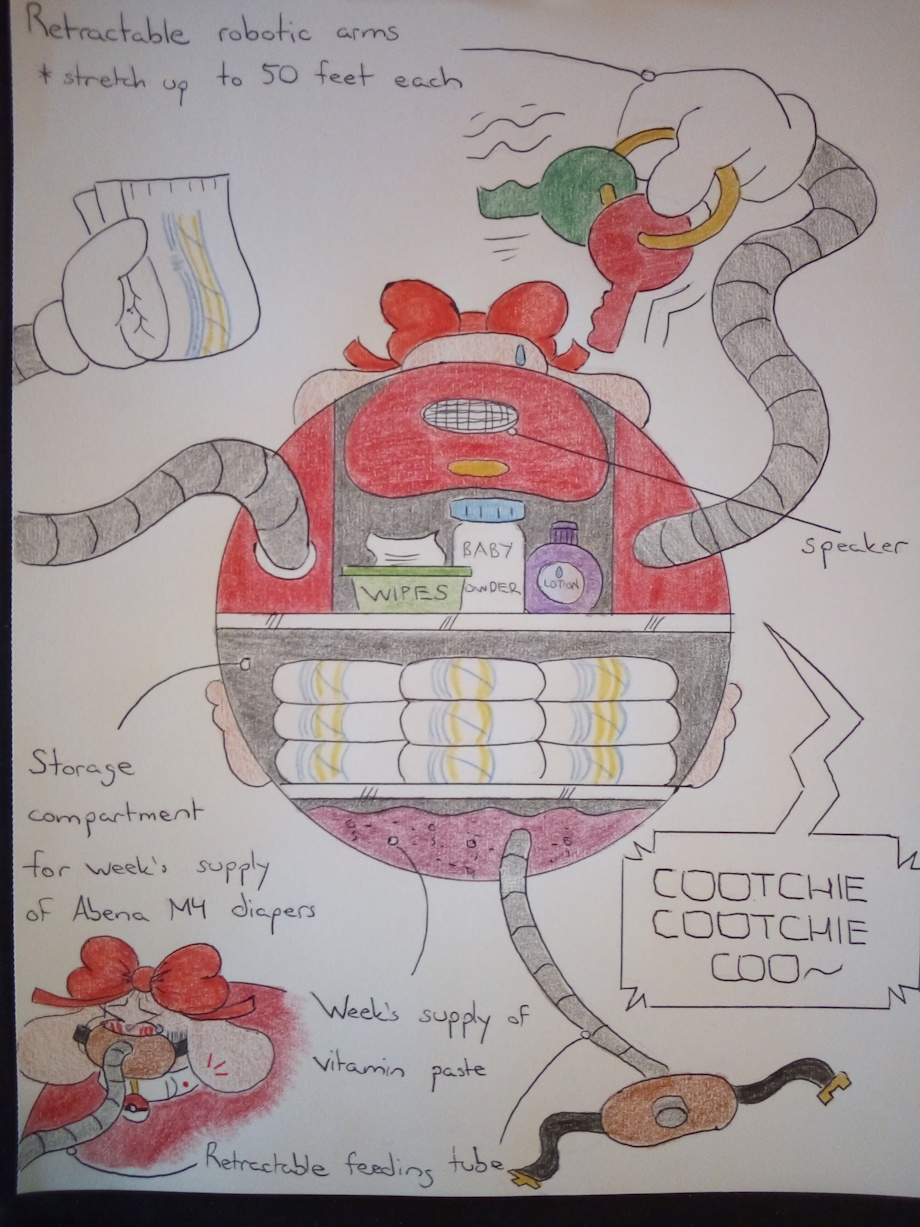 Retractable robotic arms
* stretch up to 50 feet each
speaker
BABY
OWDER
WIPES
LOTION
Storage
compartment
for week's supply
of Abena M4 diapers
COOTCHIE
COOTCHIE
COO~
Week's supply of
vitamin paste
Retractable feeding tube